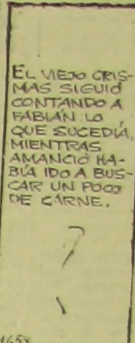 EL VIEJO CRIS-
MAS SIGUIÓ
CONTANDO A
FABIÁN LO
QUE SUCEDÍA,
MIENTRAS
AMANCIO HA-
BÍA IDO A BUS-
CAR UN POCO
DE CARNE.